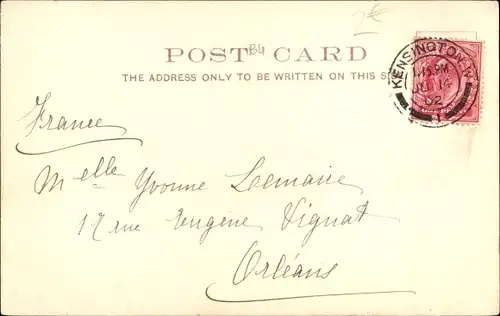 2€
B4
POST CARD
THE ADDRESS ONLY TO BE WRITTEN ON THIS SI
KENSINGTON. W
1.45.PM
14
02
1
France
Melle Yvonne Lemaire
17 rue Eugène Vignat
Orléans